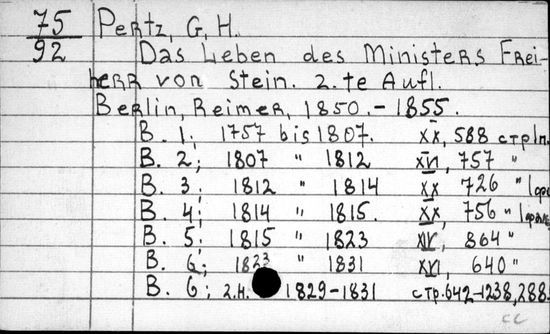 75
92
Pertz, G. H.
Das Leben des Ministers Frei-
herr von Stein. 2.te Aufl.
Berlin, Reimer, 1850.-1855.
B. 1; 1757 bis 1807. XX, 588 стр
B. 2; 1807 " 1812 757 "
B. 3. 1812 " 1814 XX 726 "
B. 4; 1814 " 1815. XX, 756 "
B. 5; 1815 " 1823 XIV, 864 "
B. 6; 1823 " 1831 XVI, 640 "
B. 6; 2.H. 1829-1831 стр.642-1238, 288.